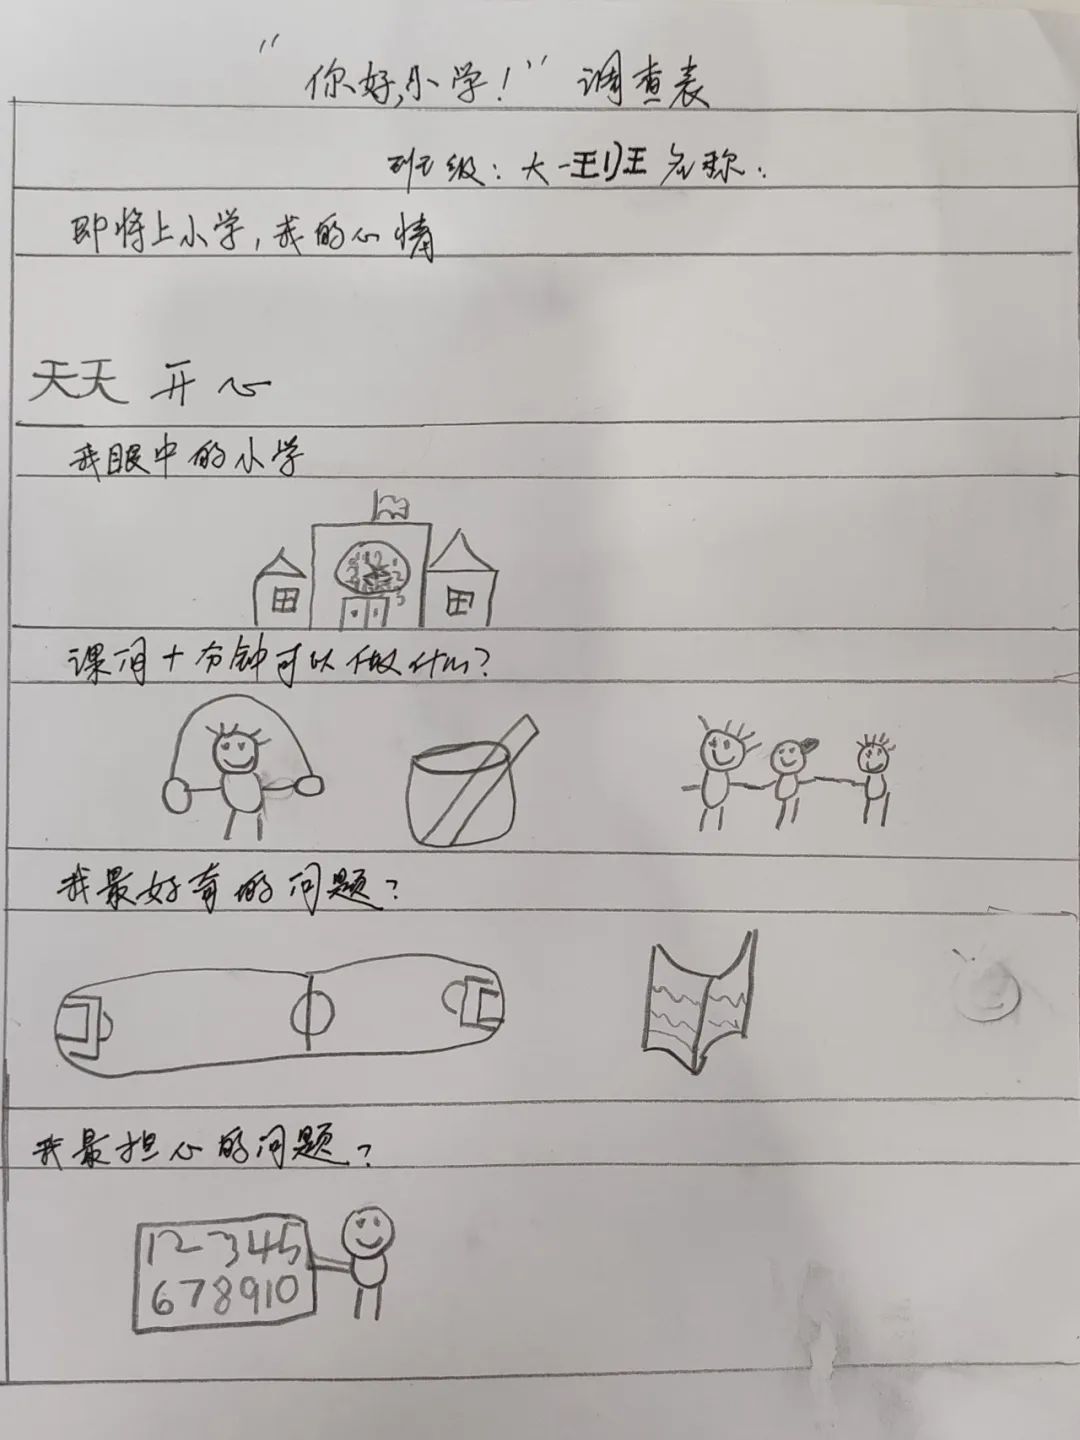 “你好,小学!”调查表
班级:大一班 名称:
即将上小学,我的心情
天天 开心
我眼中的小学
课间十分钟可以做什么?
我最好奇的问题?
我最担心的问题?
12345
678910